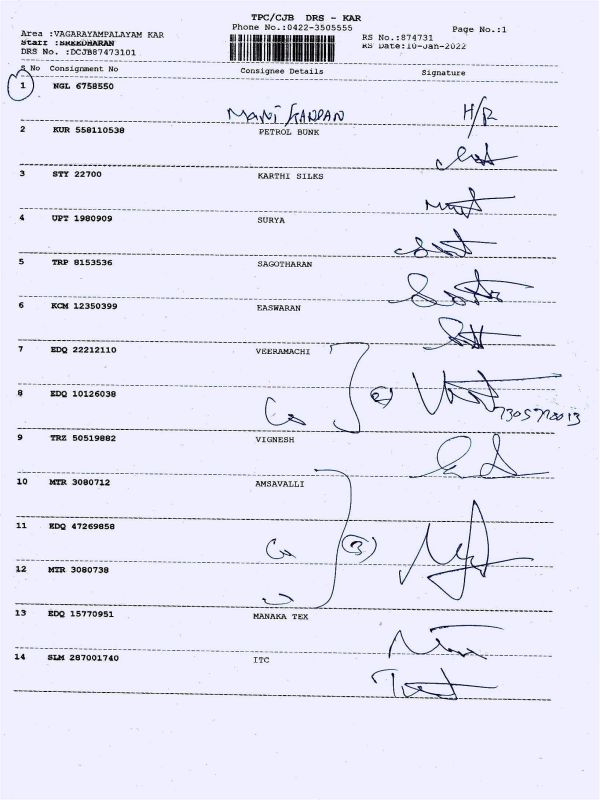 TPC/CJB DRS - KAR
Phone No.:0422-3505555
Page No.:1
Area :VAGARAYAMPALAYAM KAR
Staff :SREEDHARAN
DRS No. :DCJB87473101
RS No.:874731
RS Date:10-Jan-2022
S No Consignment No Consignee Details Signature
1 NGL 6758550
MANIKANDAN H/R
2 KUR 558110538 PETROL BUNK
3 STY 22700 KARTHI SILKS
4 UPT 1980909 SURYA
5 TRP 8153536 SAGOTHARAN
6 KCM 12350399 EASWARAN
7 EDQ 22212110 VEERAMACHI
8 EDQ 10126038
9 TRZ 50519882 VIGNESH
10 MTR 3080712 AMSAVALLI
11 EDQ 47269858
(3)
12 MTR 3080738
13 EDQ 15770951 MANAKA TEX
14 SLM 287001740 ITC